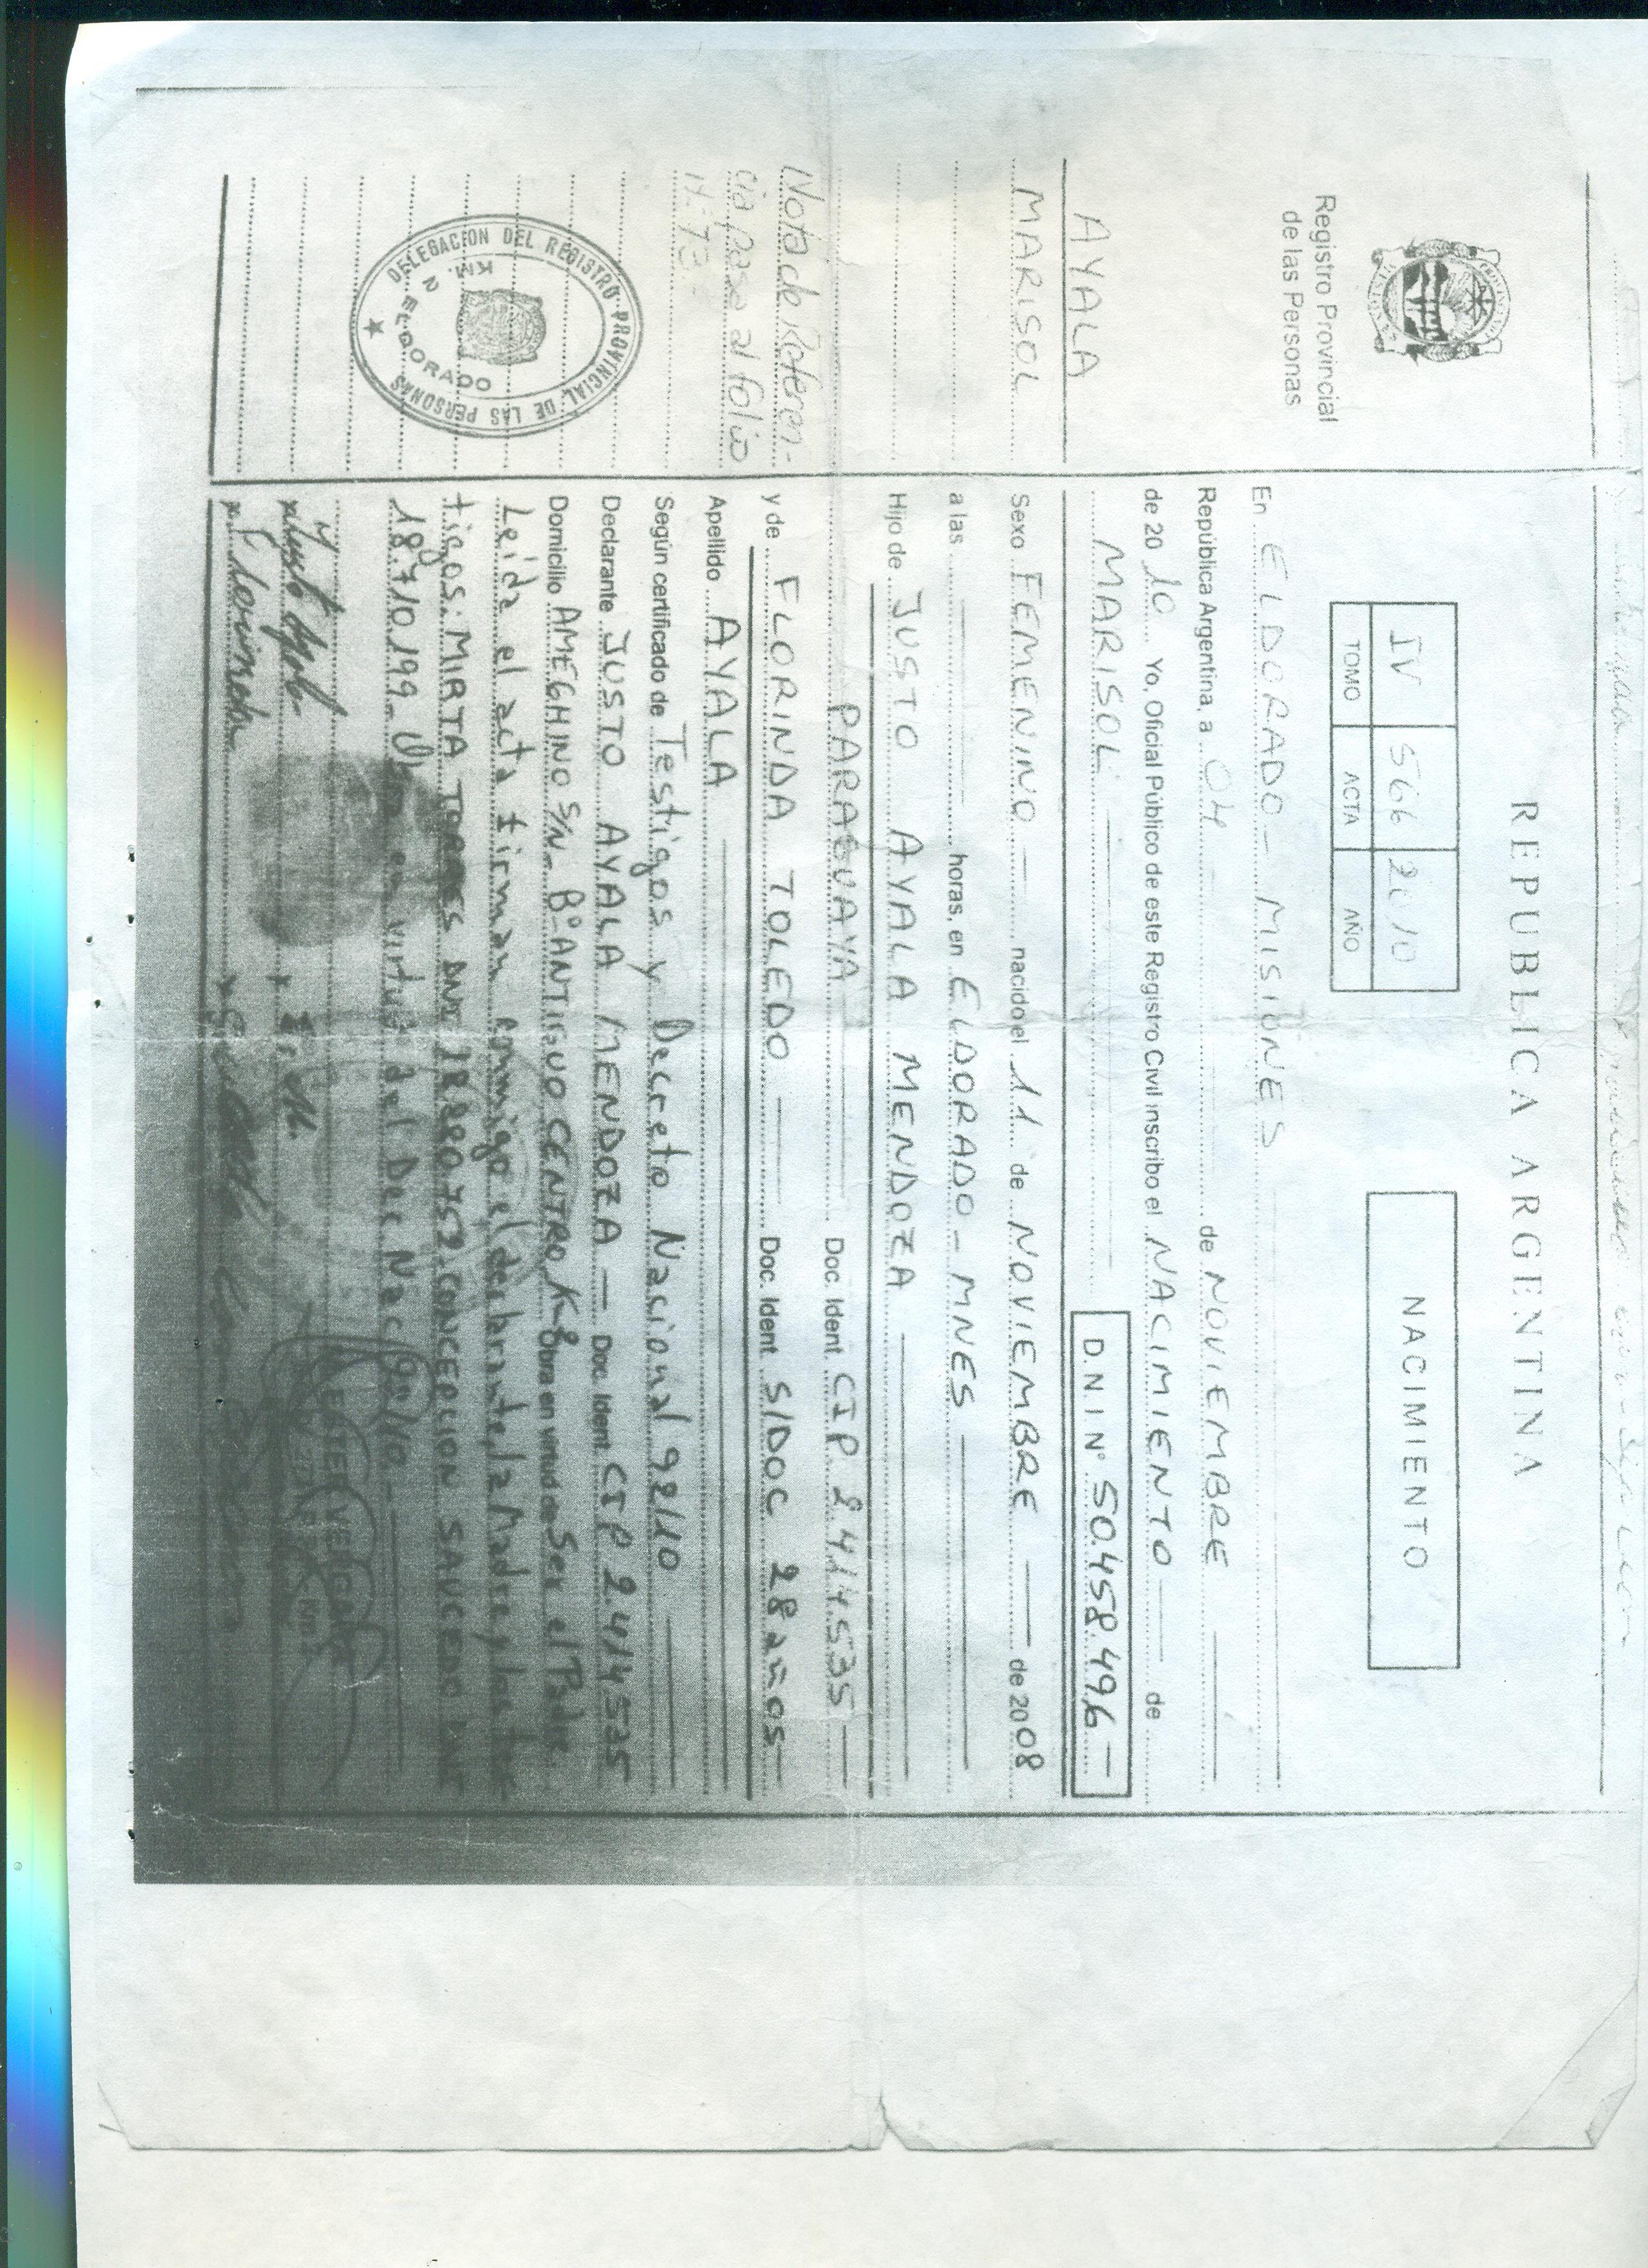 REPUBLICA ARGENTINA
Registro Provincial
de las Personas
IV 566 2010
TOMO ACTA AÑO
NACIMIENTO
AYALA
MARISOL
Nota de Referen-
cia pasa al folio
DELEGACION DEL REGISTRO PROVINCIAL DE LAS PERSONAS
KM. 2 ELDORADO
En ELDORADO - MISIONES
República Argentina, a 04 de NOVIEMBRE
de 20 10 Yo, Oficial Público de este Registro Civil inscribo el NACIMIENTO de
MARISOL D.N.I Nº 50.458.496
Sexo FEMENINO nacido el 11 de NOVIEMBRE de 2008
a las horas, en ELDORADO - MNES
Hijo de JUSTO AYALA MENDOZA
PARAGUAYA Doc. Ident. CIP 2.414.535
y de FLORINDA TOLEDO Doc. Ident. S/DOC 28 años
Apellido AYALA
Según certificado de Testigos y Decreto Nacional 92/10
Declarante JUSTO AYALA MENDOZA Doc. Ident. CIP 2.414.535
Domicilio AMEGHINO S/N - Bº ANTIGUO CENTRO K8 Obra en virtud de Ser el Padre
Leída el acta firman conmigo el declarante, la Madre y los tes-
tigos: MIRTA TORRES DNI CONCEPCION SAUCEDO
18.710.199 en virtud del Dec Nac 92/10
Florinda